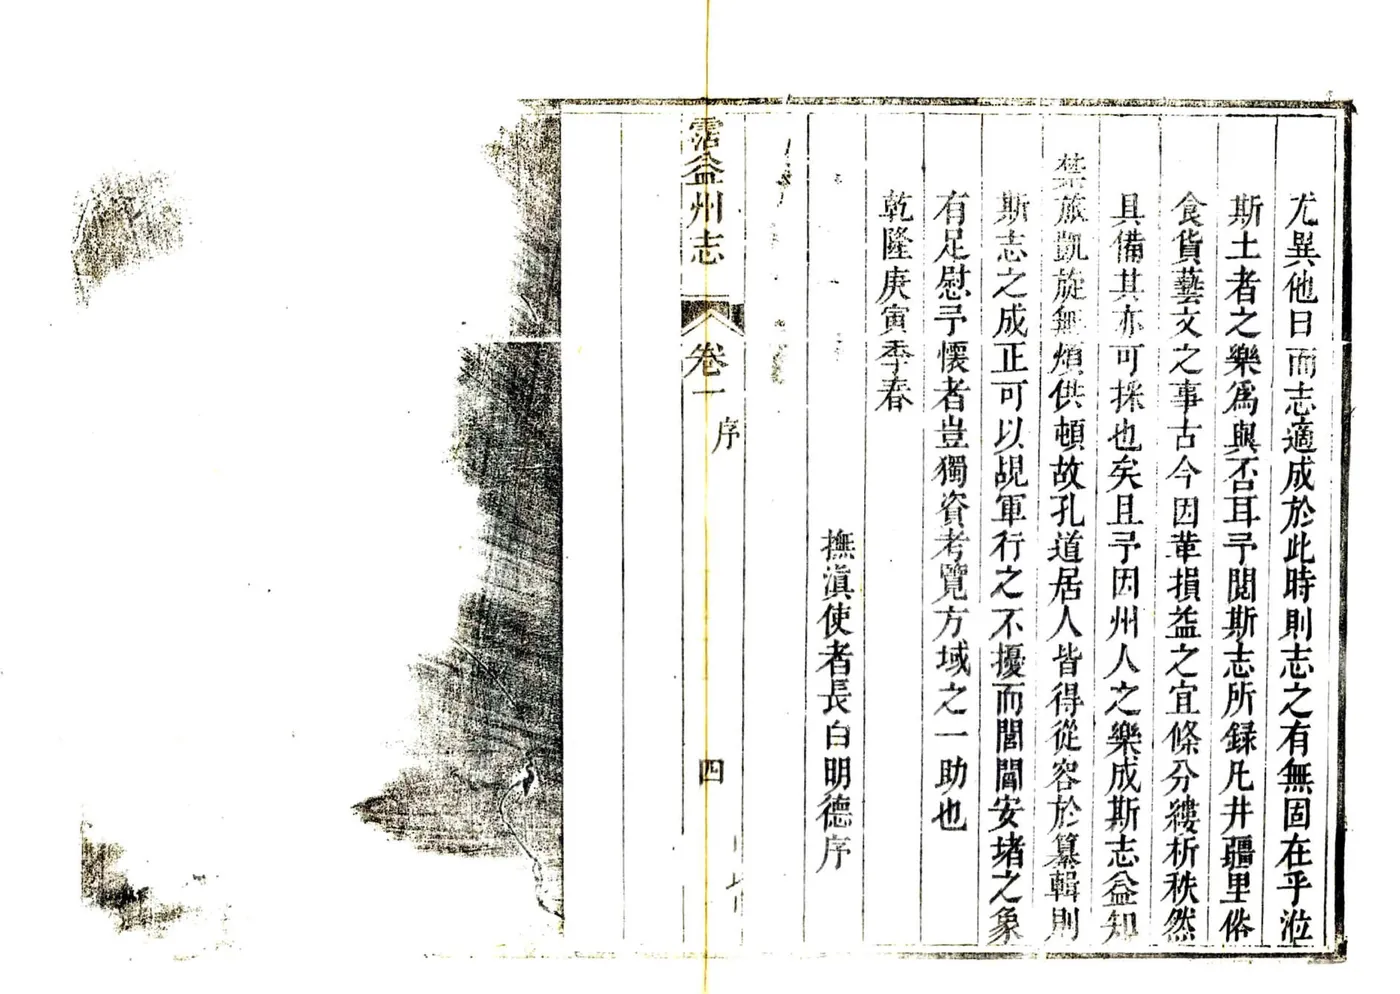 尤異他日而志適成於此時則志之有無固在乎涖
斯土者之樂爲與否耳予閱斯志所録凡井疆里俗
食貨藝文之事古今因革損益之宜條分縷析秩然
具備其亦可採也矣且予因州人之樂成斯志益知
禁旅凱旋無煩供頓故孔道居人皆得從容於纂輯則
斯志之成正可以覘軍行之不擾而閭閻安堵之象
有足慰予懷者豈獨資考覽方域之一助也
乾隆庚寅季春
撫滇使者長白明德序
霑益州志
卷一
序
四